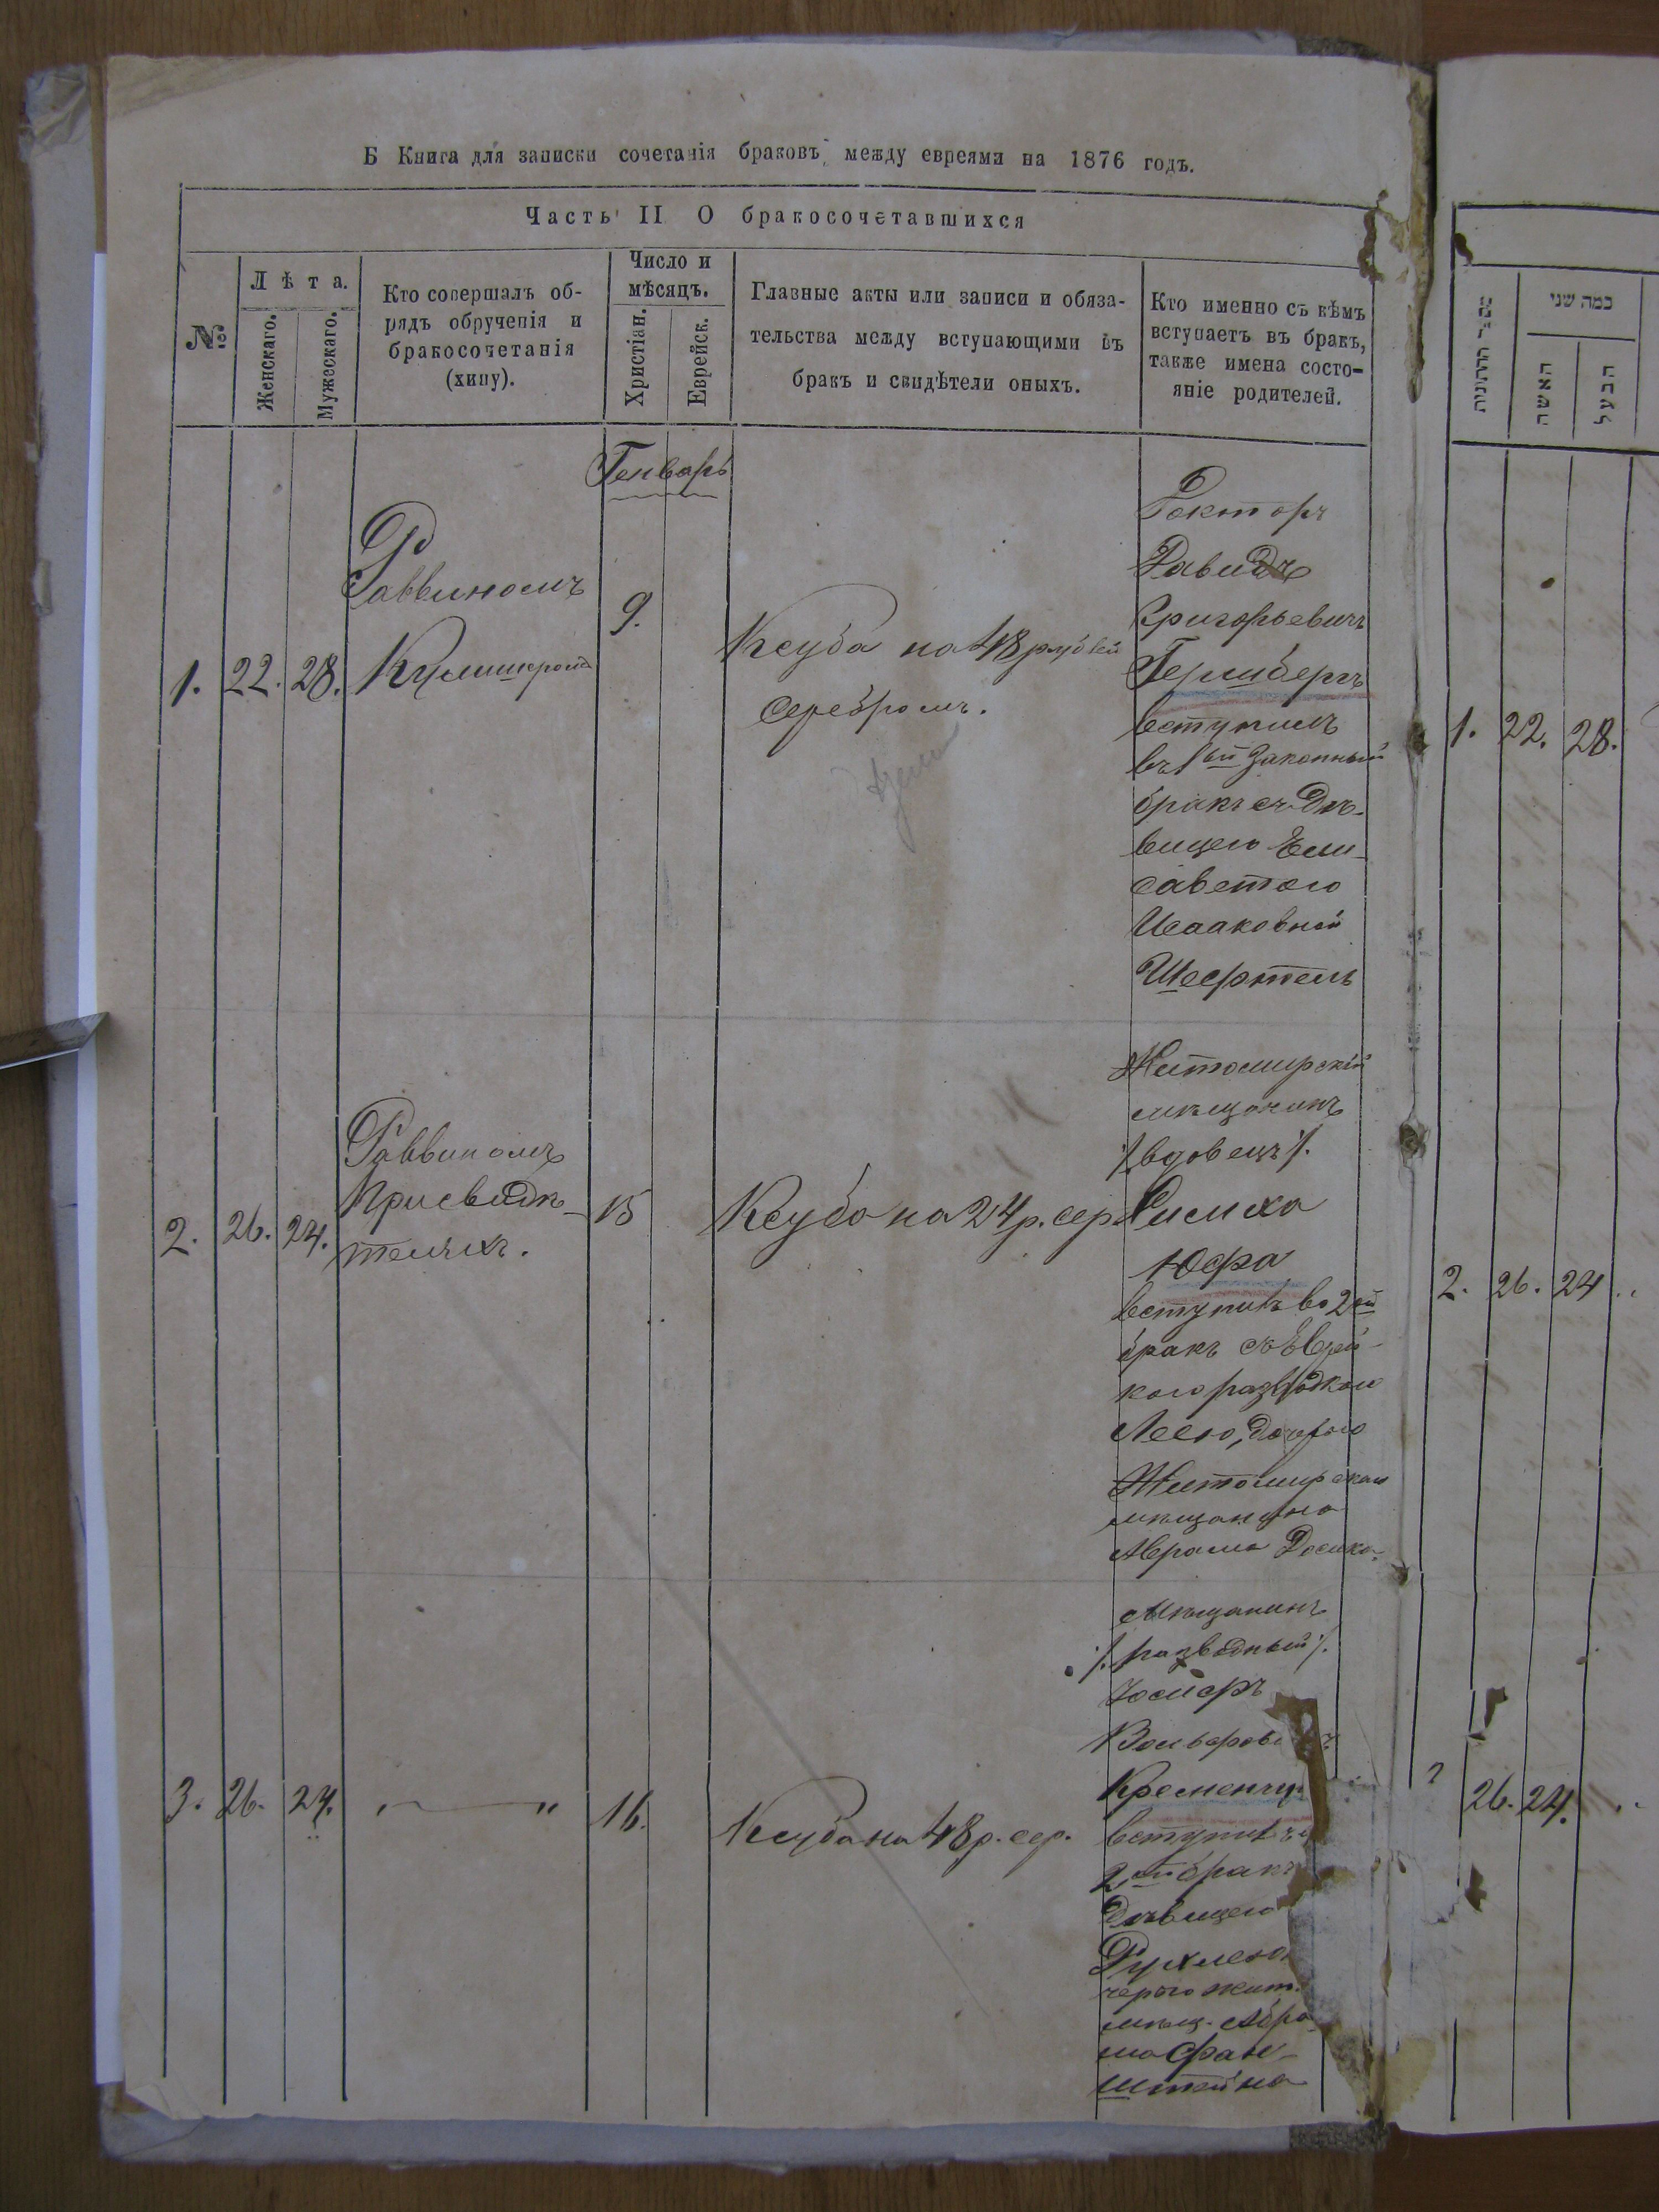 Б Книга для записки сочетанія браковъ между евреями на 1876 годъ.
Часть II О бракосочетавшихся
№
Лѣта.
Женскаго.
Мужескаго.
Кто совершалъ об-
рядъ обрученія и
бракосочетанія
(хипу).
Число и
мѣсяцъ.
Христіан.
Еврейск.
Главные акты или записи и обяза-
тельства между вступающими въ
бракъ и свидѣтели оныхъ.
Кто именно съ кѣмъ
вступаетъ въ бракъ,
также имена состо-
яніе родителей.
כמה שני
האשה
הבעל
Генварь
1. 22. 28.
Раввиномъ
9.
Ксуба на 48 рублей
серебромъ.
Докторъ
Давидъ
Григорьевичъ
вступилъ
въ 1ый законный
бракъ съ дѣ-
вицею Ели-
саветою
Исааковной
Шефтель
1. 22. 28.
2. 26. 24.
Раввиномъ
При свидѣ-
теляхъ.
15
Ксуба на 24 р. сер.
Житомирскій
мѣщанинъ
/вдовецъ/.
Симха
Юфа
вступилъ во 2ой
бракъ съ Еврей-
кою разводкою
Леею, дочерью
Житомирскаго
мѣщанина
Аврама
2. 26. 24
3. 26. 24.
"
16.
Ксуба на 48 р. сер.
Мѣщанинъ
/разводный/.
Кременчуг
вступилъ
2ой бракъ
дѣвицею
Рухлею
черью жит.
мѣщ. Абра-
ма Фан-
штейна
26. 24.